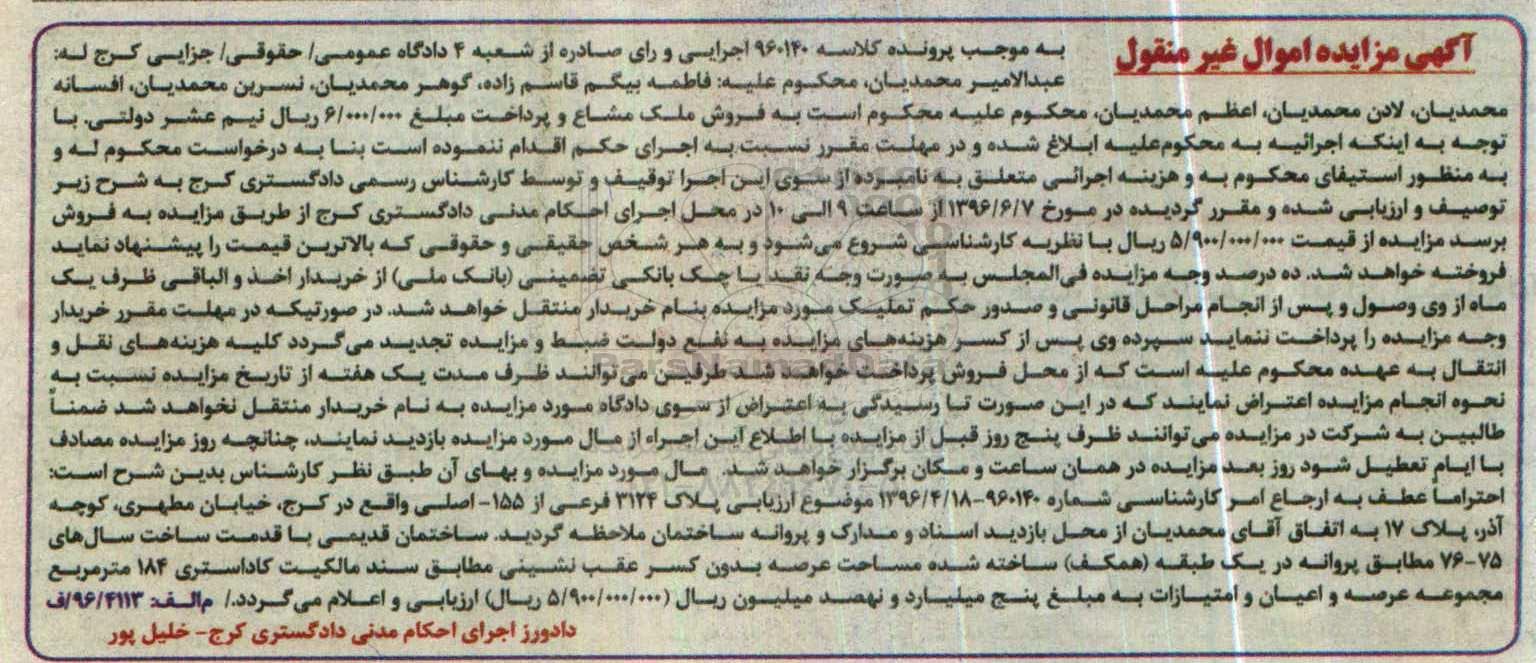 آگهی مزایده اموال غیر منقول
به موجب پرونده کلاسه ۹۶۰۱۴۰ اجرایی و رای صادره از شعبه ۴ دادگاه عمومی/ حقوقی/ جزایی کرج له:
عبدالامیر محمدیان، محکوم علیه: فاطمه بیگم قاسم زاده، گوهر محمدیان، نسرین محمدیان، افسانه
محمدیان، لادن محمدیان، اعظم محمدیان، محکوم علیه محکوم است به فروش ملک مشاع و پرداخت مبلغ ۶/۰۰۰/۰۰۰ ریال نیم عشر دولتی. با
توجه به اینکه اجرائیه به محکوم‌علیه ابلاغ شده و در مهلت مقرر نسبت به اجرای حکم اقدام ننموده است بنا به درخواست محکوم له و
به منظور استیفای محکوم به و هزینه اجرائی متعلق به نامبرده از سوی این اجرا توقیف و توسط کارشناس رسمی دادگستری کرج به شرح زیر
توصیف و ارزیابی شده و مقرر گردیده در مورخ ۱۳۹۶/۶/۷ از ساعت ۹ الی ۱۰ در محل اجرای احکام مدنی دادگستری کرج از طریق مزایده به فروش
برسد مزایده از قیمت ۵/۹۰۰/۰۰۰/۰۰۰ ریال با نظریه کارشناسی شروع می‌شود و به هر شخص حقیقی و حقوقی که بالاترین قیمت را پیشنهاد نماید
فروخته خواهد شد. ده درصد وجه مزایده فی‌المجلس به صورت وجه نقد یا چک بانکی تضمینی (بانک ملی) از خریدار اخذ و الباقی ظرف یک
ماه از وی وصول و پس از انجام مراحل قانونی و صدور حکم تملیک مورد مزایده بنام خریدار منتقل خواهد شد. در صورتیکه در مهلت مقرر خریدار
وجه مزایده را پرداخت ننماید سپرده وی پس از کسر هزینه‌های مزایده به نفع دولت ضبط و مزایده تجدید می‌گردد کلیه هزینه‌های نقل و
انتقال به عهده محکوم علیه است که از محل فروش پرداخت خواهد شد طرفین می‌توانند ظرف مدت یک هفته از تاریخ مزایده نسبت به
نحوه انجام مزایده اعتراض نمایند که در این صورت تا رسیدگی به اعتراض از سوی دادگاه مورد مزایده به نام خریدار منتقل نخواهد شد ضمناً
طالبین به شرکت در مزایده می‌توانند ظرف پنج روز قبل از مزایده با اطلاع این اجراء از مال مورد مزایده بازدید نمایند، چنانچه روز مزایده مصادف
با ایام تعطیل شود روز بعد مزایده در همان ساعت و مکان برگزار خواهد شد. مال مورد مزایده و بهای آن طبق نظر کارشناس بدین شرح است:
احتراماً عطف به ارجاع امر کارشناسی شماره ۹۶۰۱۴۰-۱۳۹۶/۴/۱۸ موضوع ارزیابی پلاک ۳۱۲۴ فرعی از ۱۵۵- اصلی واقع در کرج، خیابان مطهری، کوچه
آذر، پلاک ۱۷ به اتفاق آقای محمدیان از محل بازدید اسناد و مدارک و پروانه ساختمان ملاحظه گردید. ساختمان قدیمی با قدمت ساخت سال‌های
۷۵-۷۶ مطابق پروانه در یک طبقه (همکف) ساخته شده مساحت عرصه بدون کسر عقب نشینی مطابق سند مالکیت کاداستری ۱۸۴ مترمربع
مجموعه عرصه و اعیان و امتیازات به مبلغ پنج میلیارد و نهصد میلیون ریال (۵/۹۰۰/۰۰۰/۰۰۰ ریال) ارزیابی و اعلام می‌گردد./ م‌الـف: ۹۶/۴۱۱۳/ف
دادورز اجرای احکام مدنی دادگستری کرج- خلیل پور
ParsNamadData